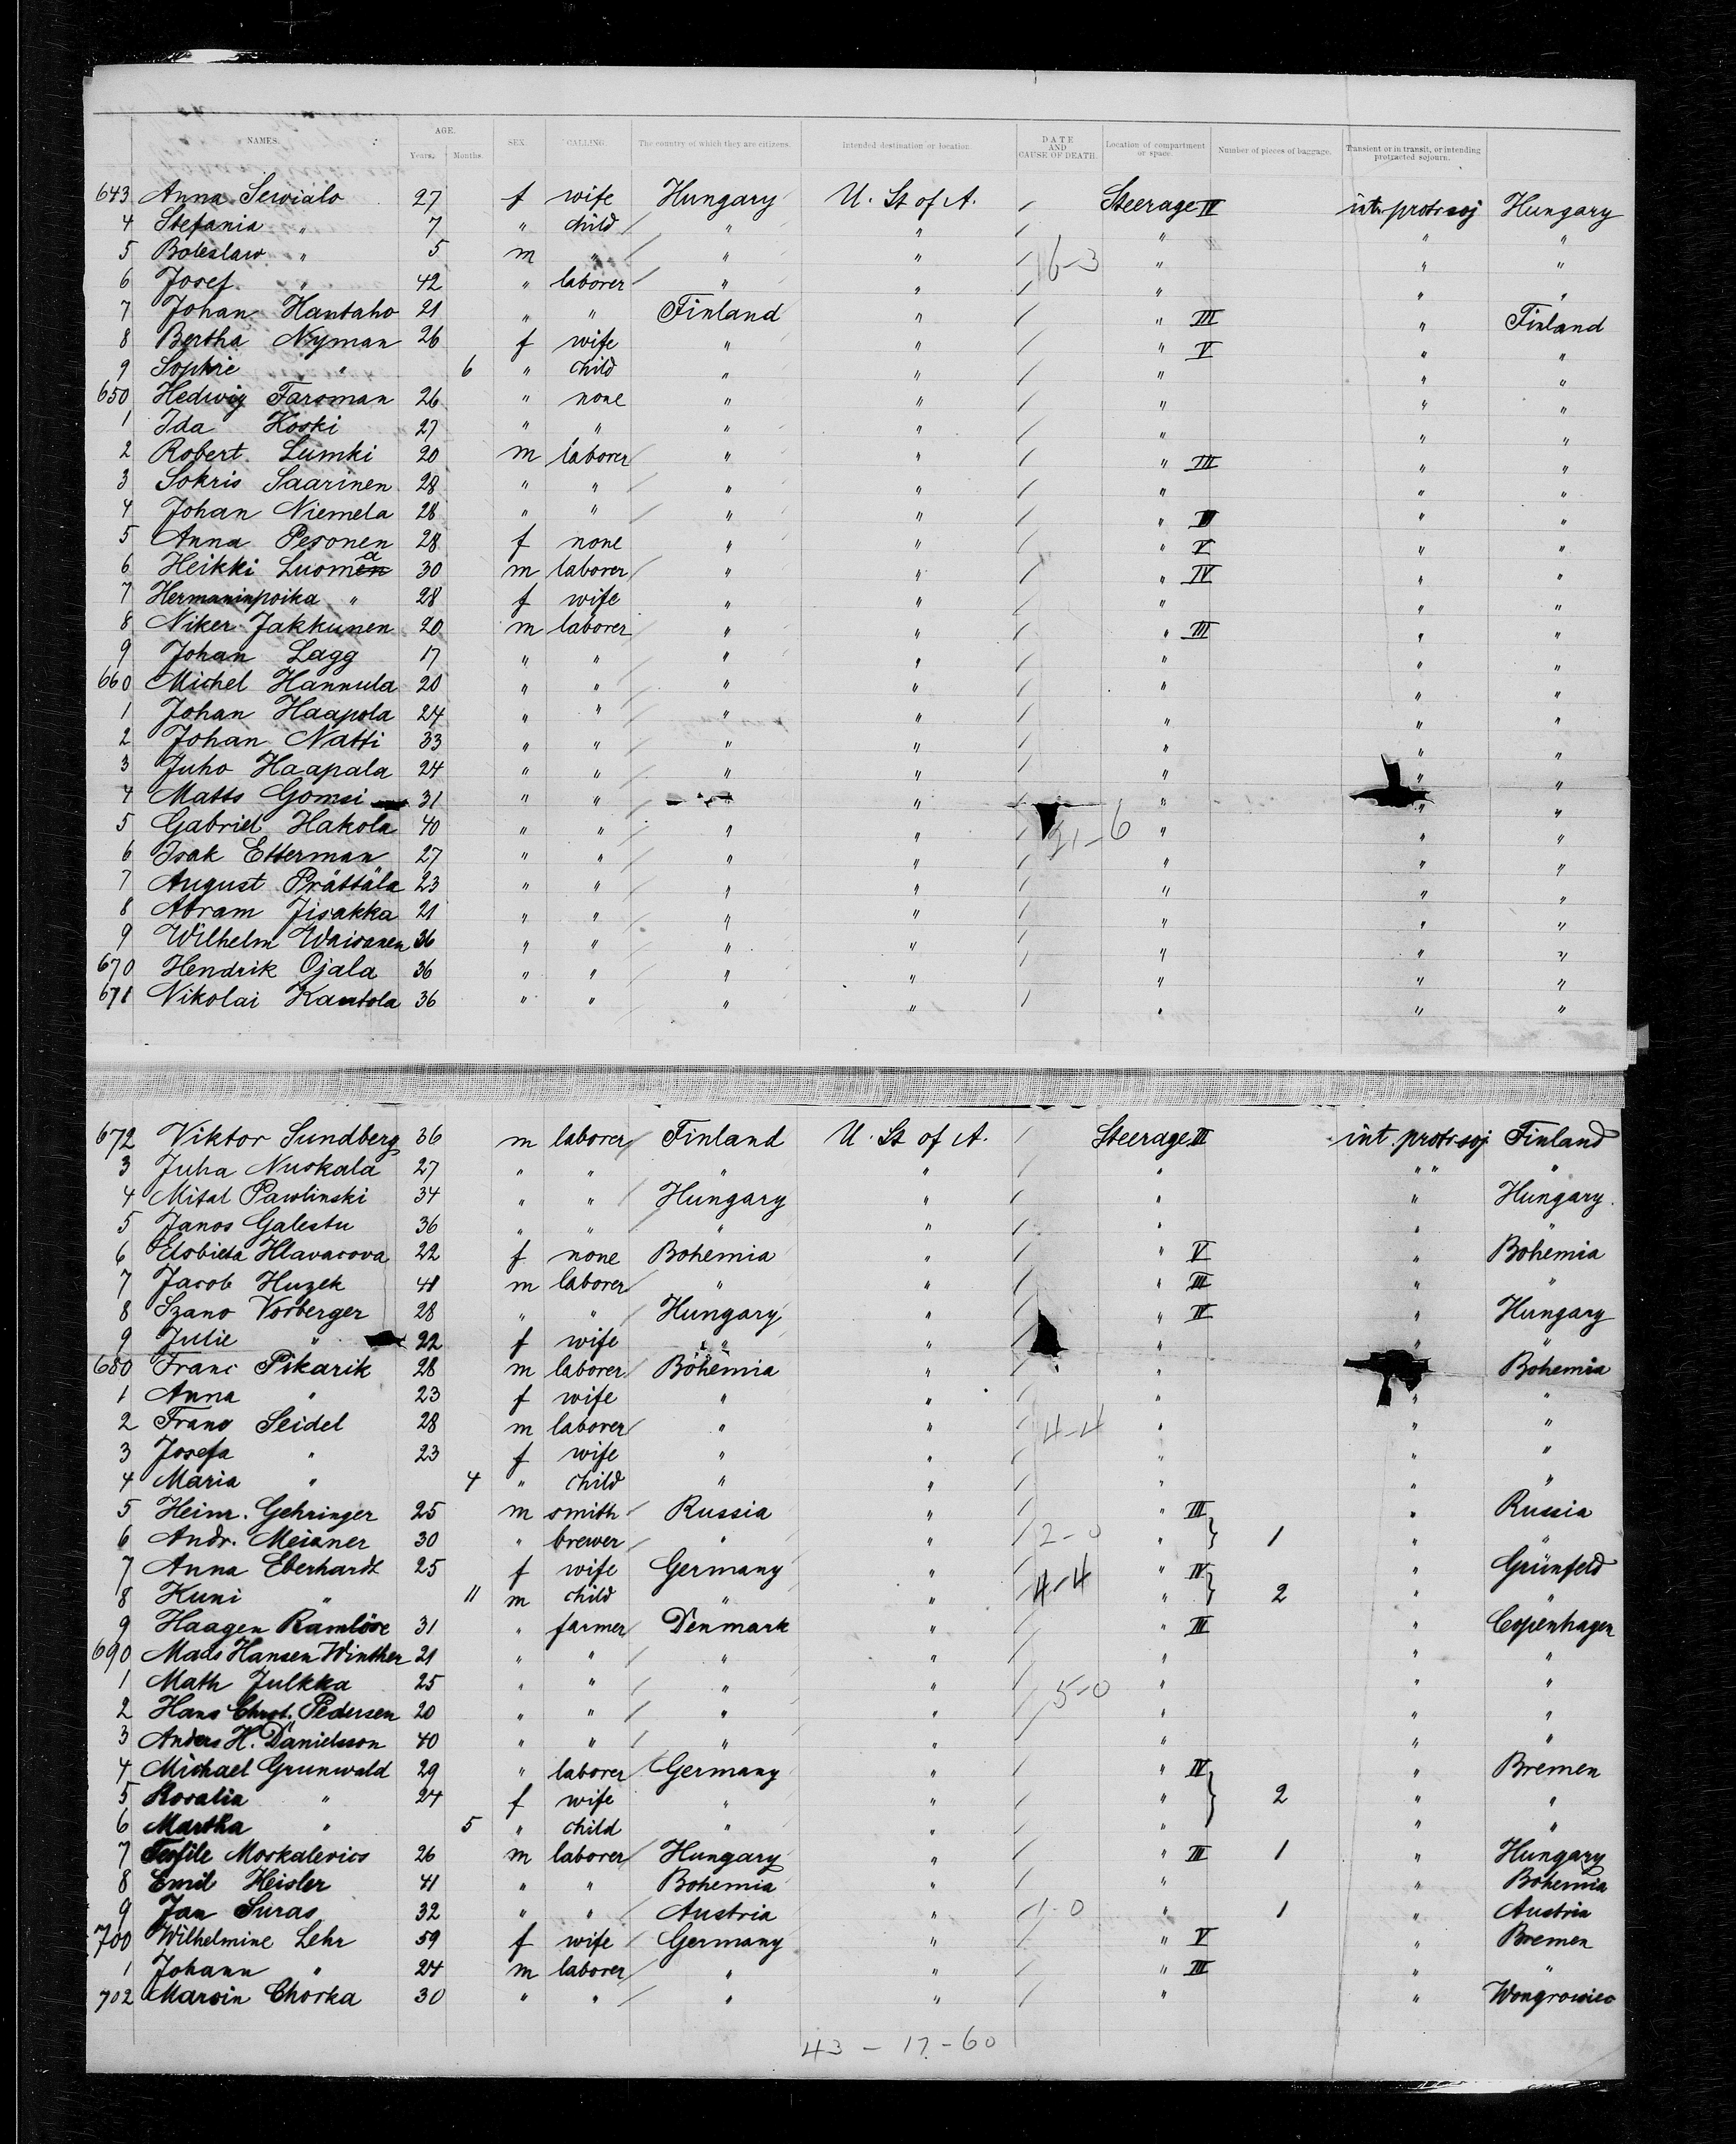 NAMES. AGE. Years. Months. SEX. CALLING. The country of which they are citizens. Intended destination or location. DATE AND CAUSE OF DEATH. Location of compartment or space. Number of pieces of baggage. Transient or in transit, or intending protracted sojourn.
643 Anna Sewialo 27 f wife Hungary U. St of A. / Steerage IV int. protr soj Hungary
4 Stefania " 7 " child " " / " " "
5 Boleslaw " 5 m " " " / 6-3 " " "
6 Josef " 42 " laborer " " / " " "
7 Johan Hantaho 21 " " Finland " / " III " Finland
8 Bertha Nyman 26 f wife " " / " V " "
9 Sophie " 6 " child " " / " " "
650 Hedwig Farsman 26 " none " " / " " "
1 Ida Koski 27 " " " " / " " "
2 Robert Lumki 20 m laborer " " / " III " "
3 Sokris Saarinen 28 " " " " / " " "
4 Johan Niemela 28 " " " " / " " "
5 Anna Pesonen 28 f none " " / " V " "
6 Heikki Luoma 30 m laborer " " / " IV " "
7 Hermaninpoika " 28 f wife " " / " " "
8 Niker Jakkunen 20 m laborer " " / " III " "
9 Johan Lagg 17 " " " " / " " "
660 Michel Hannula 20 " " " " / " " "
1 Johan Haapola 24 " " " " / " " "
2 Johan Natti 33 " " " " / " " "
3 Juho Haapala 24 " " " " / " " "
4 Matts Gomsi 31 " " " " / " " "
5 Gabriel Hakola 40 " " " " / 21-6 " " "
6 Isak Etterman 27 " " " " / " " "
7 August Prättäla 23 " " " " / " " "
8 Abram Jisakka 21 " " " " / " " "
9 Wilhelm Waisanen 36 " " " " / " " "
670 Hendrik Ojala 36 " " " " / " " "
671 Nikolai Kantola 36 " " " " / " " "
672 Viktor Sundberg 36 m laborer Finland U. St of A. / Steerage III int. protr soj Finland
3 Juha Nuskala 27 " " " " / " " " "
4 Mital Pawlinski 34 " " Hungary " / " " Hungary
5 Janos Galestu 36 " " " " / " " "
6 Elsbieta Hlavacova 22 f none Bohemia " / " V " Bohemia
7 Jacob Huzek 41 m laborer " " / " III " "
8 Szano Vorberger 28 " " Hungary " / " IV " Hungary
9 Julie " 22 f wife " " / " " "
680 Franc Pikarik 28 m laborer Bohemia " / " Bohemia
1 Anna " 23 f wife " " / " " "
2 Franc Seidel 28 m laborer " " / 4-4 " " "
3 Josefa " 23 f wife " " / " " "
4 Maria " 4 " child " " / " " "
5 Heinr. Gehringer 25 m smith Russia " / " III " Russia
6 Andr. Meixner 30 " brewer " " / 2-0 " 1 " "
7 Anna Eberhardt 25 f wife Germany " / " IV " Grünfeld
8 Kuni " 11 m child " " 4-4 " 2 " "
9 Haagen Ramlöse 31 " farmer Denmark " / " III " Copenhagen
690 Mads Hansen Winther 21 " " " " / " " "
1 Math Julkka 25 " " " " / 5-0 " " "
2 Hans Christ. Pedersen 20 " " " " / " " "
3 Anders H. Danielsson 40 " " " " / " " "
4 Michael Grunwald 29 " laborer Germany " / " IV " Bremen
5 Rosalia " 24 f wife " " / " 2 " "
6 Martha " 5 " child " " / " " "
7 Teofile Moskalevics 26 m laborer Hungary " / " III 1 " Hungary
8 Emil Heisler 41 " " Bohemia " / " " Bohemia
9 Jan Suras 32 " " Austria " / 1-0 " 1 " Austria
700 Wilhelmine Lehr 59 f wife Germany " / " V " Bremen
1 Johann " 24 m laborer " " / " III " "
702 Marcin Chorka 30 " " " " / " " Wongrowiec
43 - 17 - 60